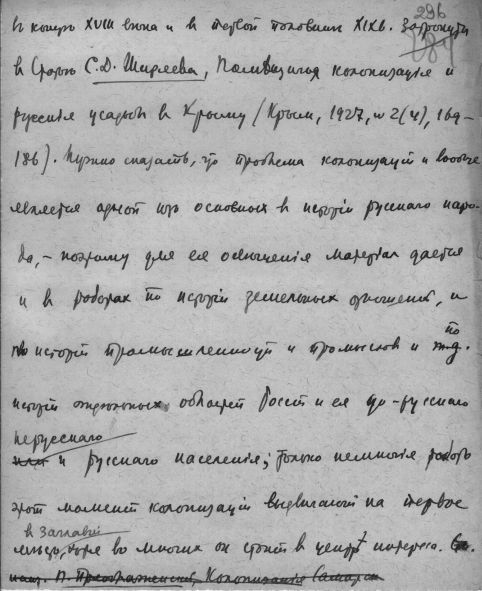 296
284
в конце XVIII века и в первой половине XIX в. Затронута
в статье С.Д. Ширяева, Помещичья колонизація и
русскія усадьбы в Крыму (Крым, 1927, № 2(4), 169-
186). Нужно сказать, что проблема колонизаціи и вообще
является одной из основных в исторіи русскаго наро-
да, - поэтому для ея освещенія матеріал дается
и в работах по исторіи земельных отношеній, и
по исторіи промышленности и промыслов и по
исторіи отдельных областей Россіи и ея
нерусскаго
и русскаго населенія; только немногія работы
этот момент колонизаціи выдвигают на первое
в заглавіи
место, хотя во многих он стоит в центре интереса.
напр. П. Преображенскій, Колонизація Самарск